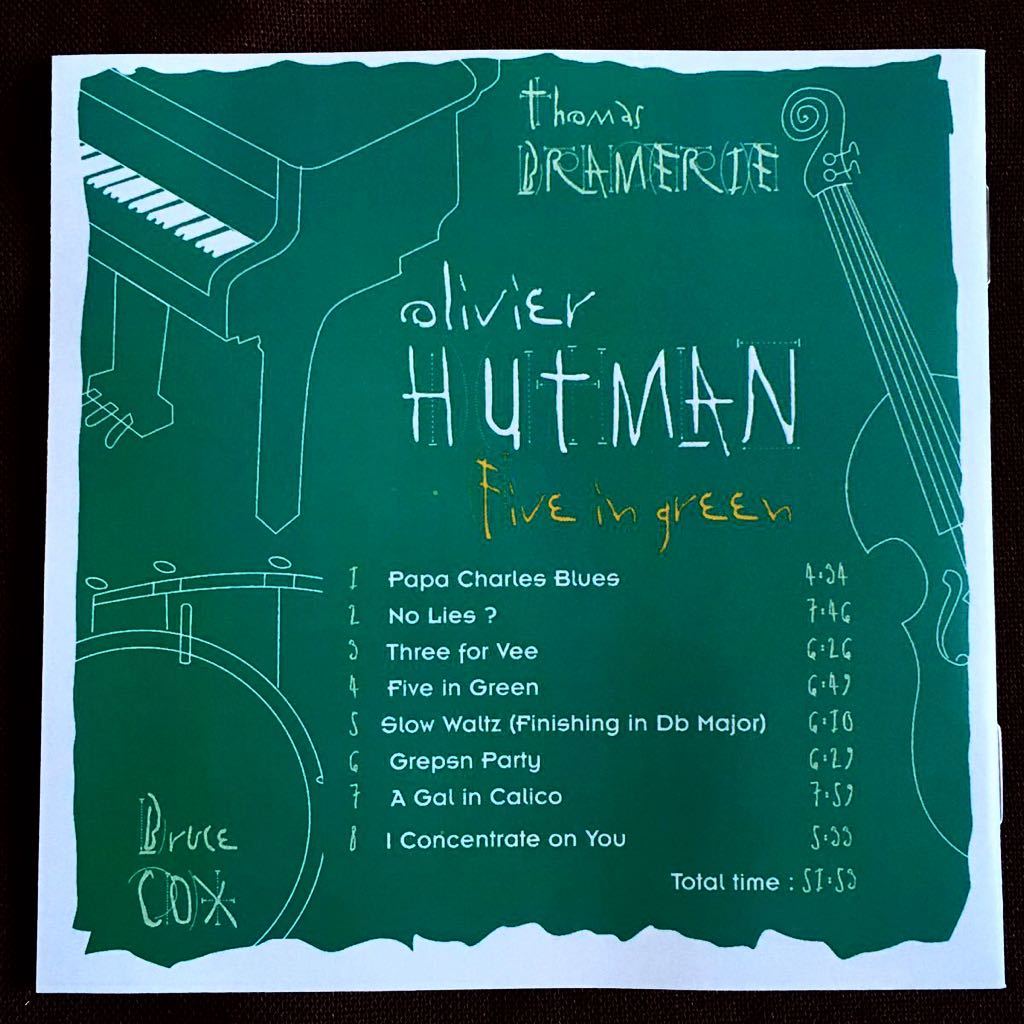 Thomas
BRAMERIE
Olivier
HUTMAN
Five in green
1 Papa Charles Blues 4:34
2 No Lies ? 7:46
3 Three for Vee 6:26
4 Five in Green 6:49
5 Slow Waltz (Finishing in Db Major) 6:10
6 Grepsn Party 6:29
7 A Gal in Calico 7:59
8 I Concentrate on You 5:33
Total time : 51:53
Bruce
COX